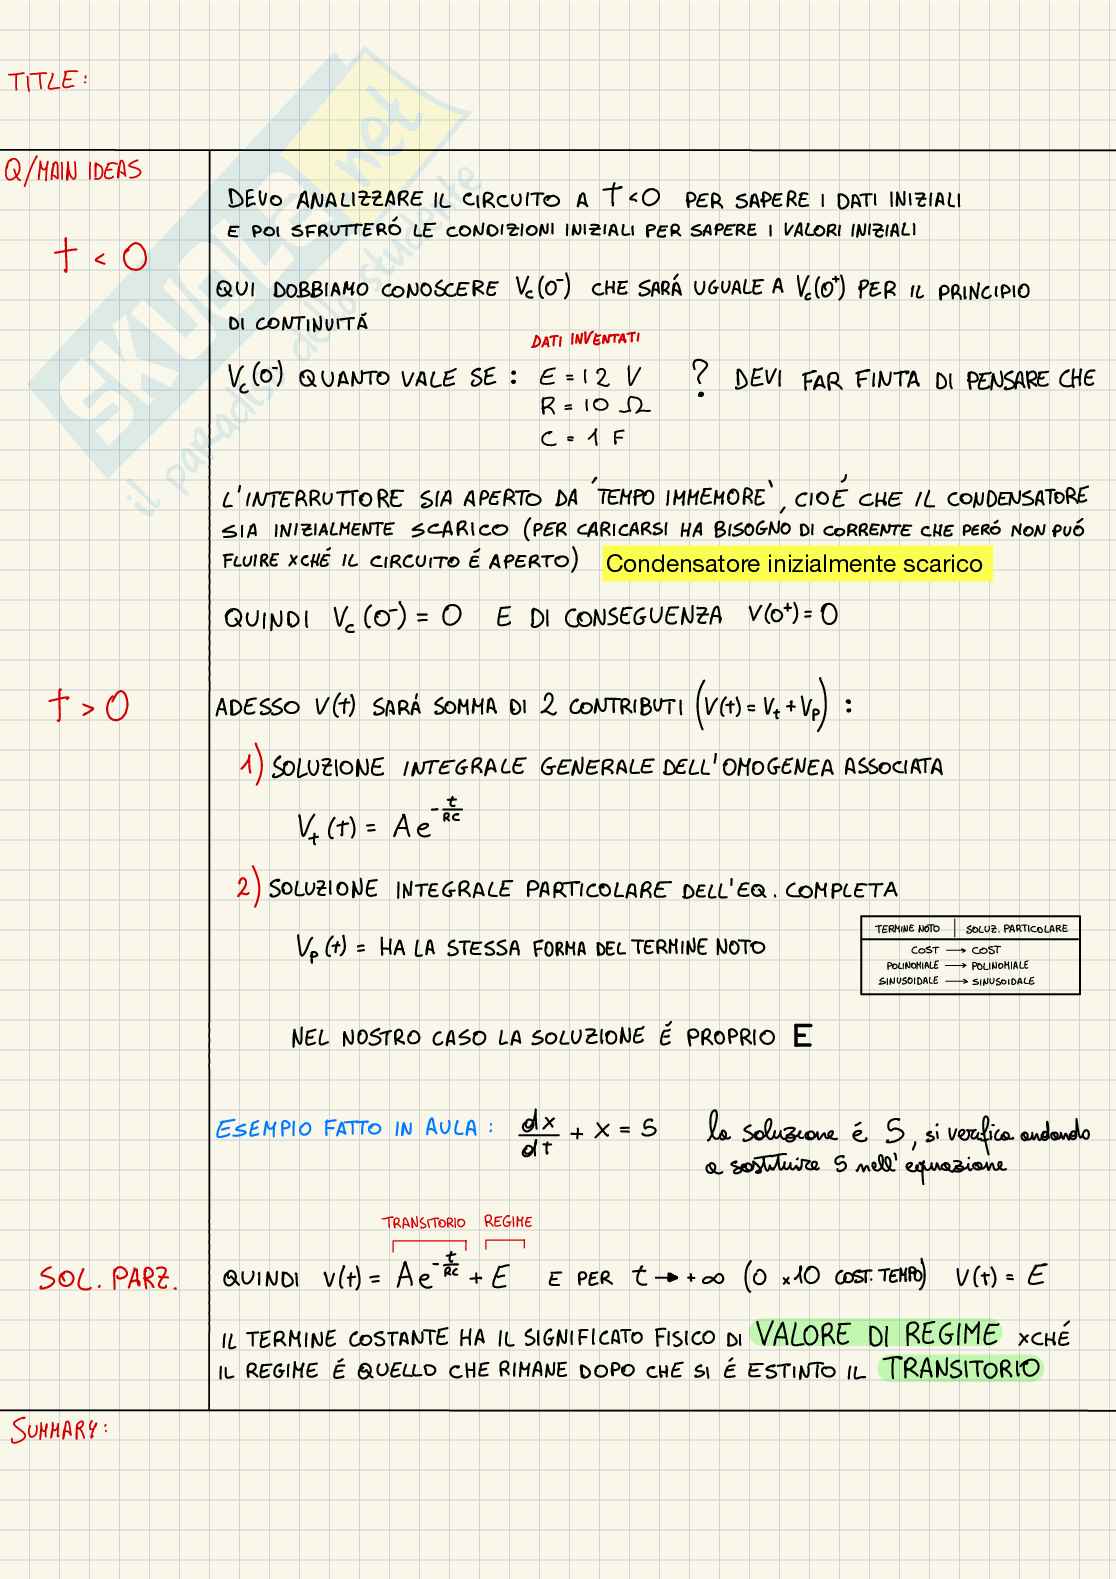 TITLE:
Q/MAIN IDEAS
t < 0
DEVO ANALIZZARE IL CIRCUITO A t<0 PER SAPERE I DATI INIZIALI
E POI SFRUTTERÓ LE CONDIZIONI INIZIALI PER SAPERE I VALORI INIZIALI
QUI DOBBIAMO CONOSCERE Vc(0⁻) CHE SARÁ UGUALE A Vc(0⁺) PER IL PRINCIPIO
DI CONTINUITÁ
DATI INVENTATI
Vc(0⁻) QUANTO VALE SE : E = 12 V ? DEVI FAR FINTA DI PENSARE CHE
R = 10 Ω
C = 1 F
L'INTERRUTTORE SIA APERTO DA 'TEMPO IMMEMORE', CIOÉ CHE IL CONDENSATORE
SIA INIZIALMENTE SCARICO (PER CARICARSI HA BISOGNO DI CORRENTE CHE PERÓ NON PUÓ
FLUIRE XCHÉ IL CIRCUITO É APERTO) Condensatore inizialmente scarico
QUINDI Vc (0⁻) = 0 E DI CONSEGUENZA V(0⁺) = 0
t > 0
ADESSO V(t) SARÁ SOMMA DI 2 CONTRIBUTI (V(t) = Vt + Vp) :
1) SOLUZIONE INTEGRALE GENERALE DELL'OMOGENEA ASSOCIATA
Vt (t) = A e^(-t/RC)
2) SOLUZIONE INTEGRALE PARTICOLARE DELL'EQ. COMPLETA
Vp (t) = HA LA STESSA FORMA DEL TERMINE NOTO
TERMINE NOTO | SOLUZ. PARTICOLARE
COST → COST
POLINOMIALE → POLINOMIALE
SINUSOIDALE → SINUSOIDALE
NEL NOSTRO CASO LA SOLUZIONE É PROPRIO E
ESEMPIO FATTO IN AULA : dx/dt + x = 5 la soluzione é 5, si verifica andando
a sostituire 5 nell'equazione
TRANSITORIO REGIME
SOL. PARZ.
QUINDI V(t) = A e^(-t/RC) + E E PER t → +∞ (O ×10 COST. TEMPO) V(t) = E
IL TERMINE COSTANTE HA IL SIGNIFICATO FISICO DI VALORE DI REGIME XCHÉ
IL REGIME É QUELLO CHE RIMANE DOPO CHE SI É ESTINTO IL TRANSITORIO
SUMMARY:
SKUOLA.net
il paradiso dello studente